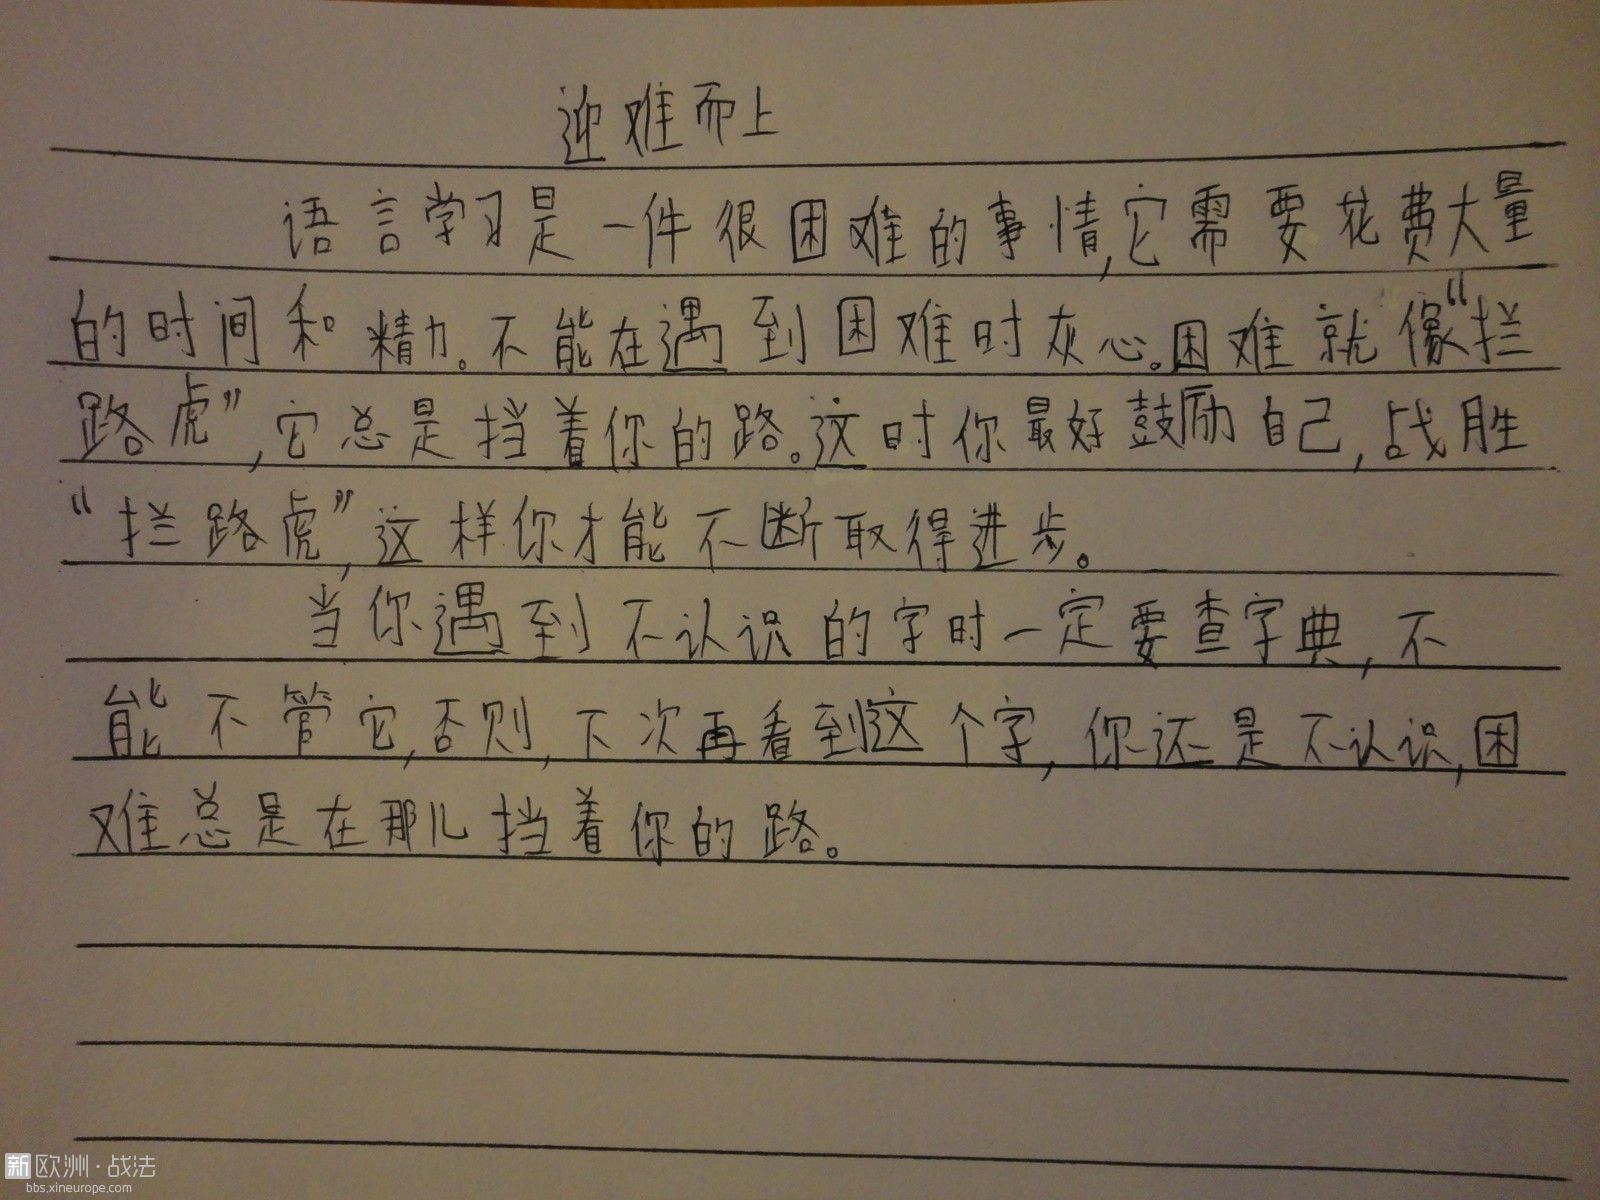 迎难而上
语言学习是一件很困难的事情,它需要花费大量
的时间和精力。不能在遇到困难时灰心。困难就像“拦
路虎”,它总是挡着你的路。这时你最好鼓励自己,战胜
“拦路虎”,这样你才能不断取得进步。
当你遇到不认识的字时一定要查字典,不
能不管它,否则,下次再看到这个字,你还是不认识,困
难总是在那儿挡着你的路。
新欧洲·战法
bbs.xineurope.com